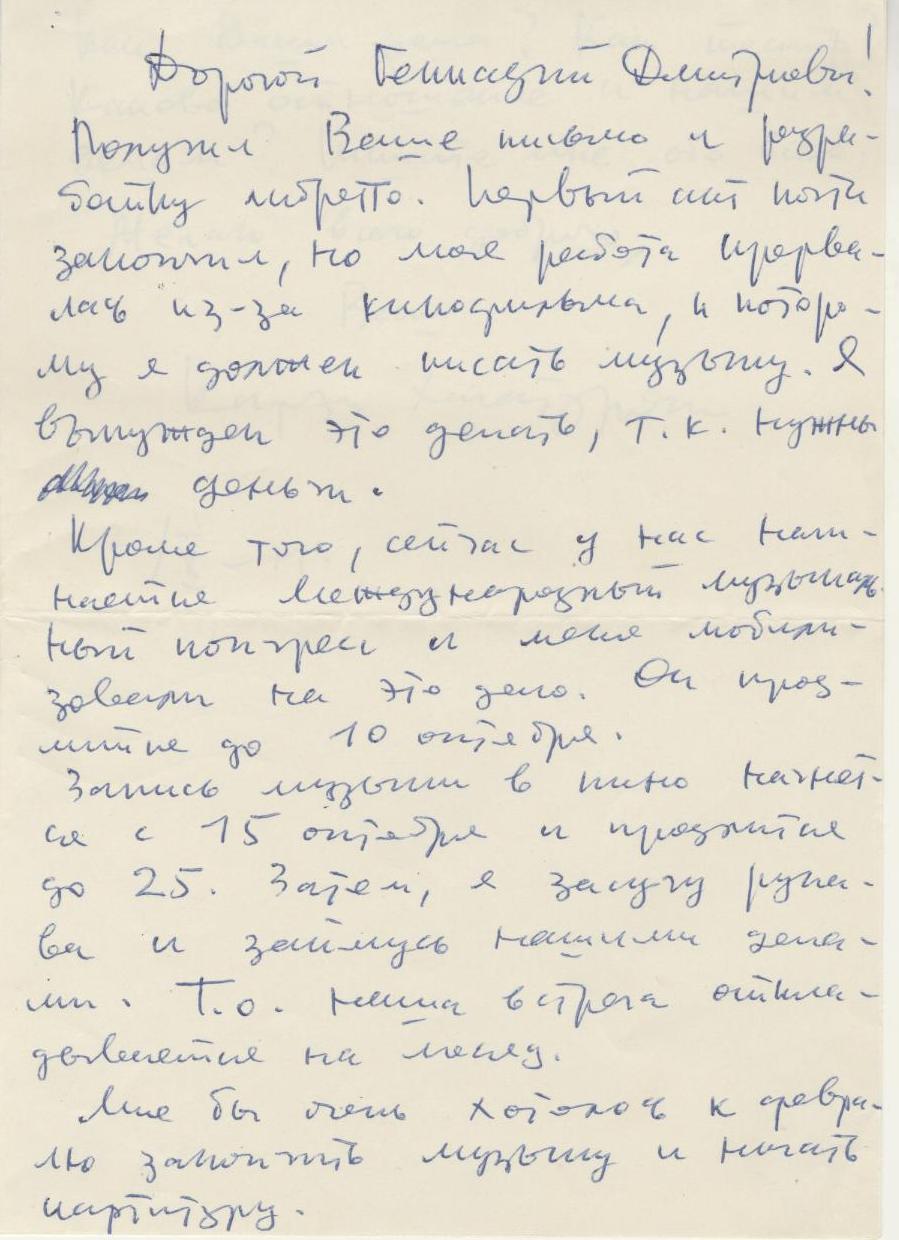 Дорогой Геннадий Дмитриевич!
Получил Ваше письмо и разра-
ботку либретто. Первый акт почти
закончил, но моя работа прерва-
лась из-за кинофильма, к которо-
му я должен писать музыку. Я
вынужден это делать, т.к. нужны
деньги.
Кроме того, сейчас у нас начи-
нается Международный музыкаль-
ный конгресс и меня мобили-
зовали на это дело. Он прод-
лится до 10 октября.
Запись музыки в кино начнёт-
ся с 15 октября и продлится
до 25. Затем, я засучу рука-
ва и займусь нашими дела-
ми. Т.о. наша встреча откла-
дывается на месяц.
Мне бы очень хотелось к февра-
лю закончить музыку и начать
партитуру.